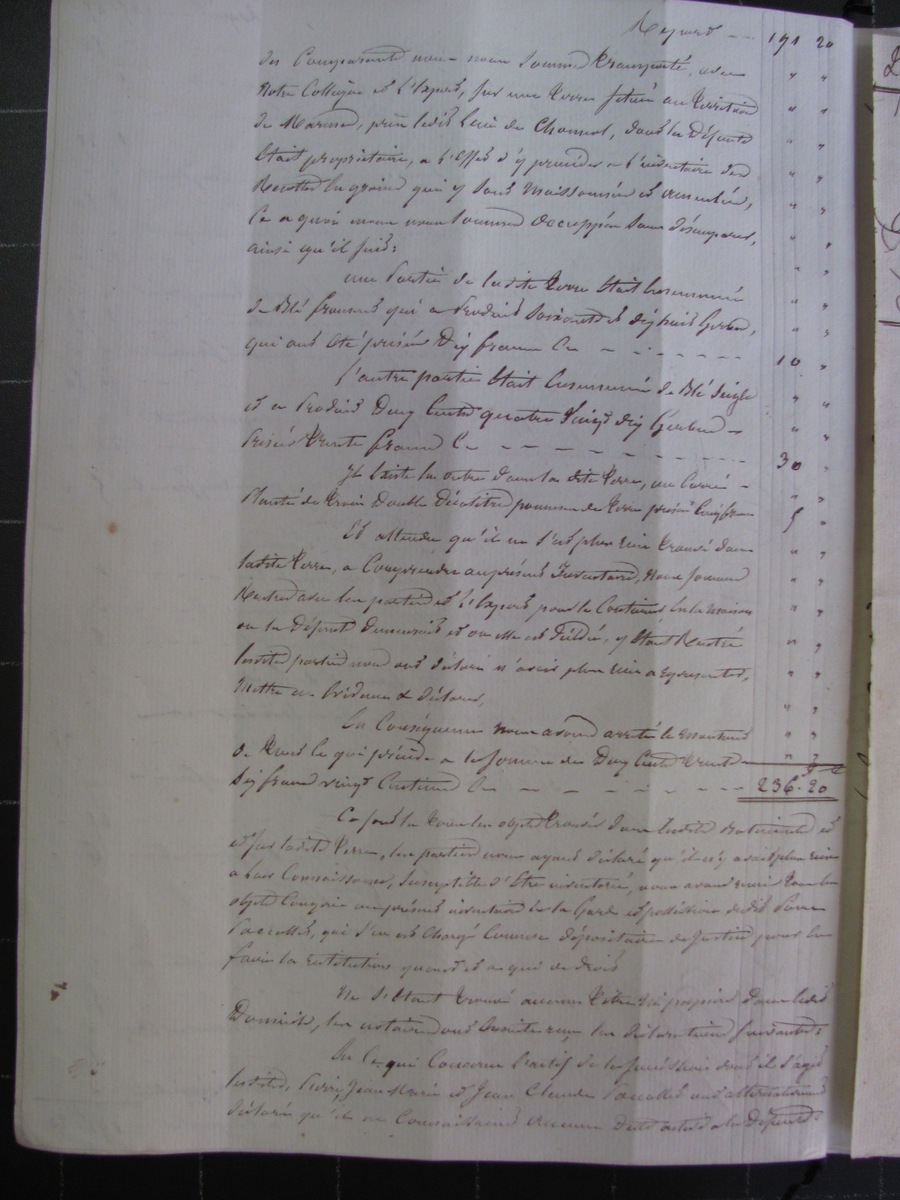 Report --- 191 20
des Comparants nous nous sommes transporté, avec
Notre Collègue et l'Expert, sur une terre située au territoire
de, près ledit lieu de, dont la Défunte
était propriétaire, a l'Effet d'y procéder a l'inventaire des
Recoltes en grains qui y sont moissonnées et,
Ce a quoi nous nous sommes occuppés sans désemparer,
ainsi qu'il suit:
une Partie de la dite terre était Ensemencée
de Blé froment qui a Produit Soixante et dix huit Gerbes,
qui ont été prisées Dix francs Ci - - - - - - 10 "
l'autre partie était Ensemencée de Blé Seigle
et a Produit Deux Cents quatre Vingt dix Gerbes -
Prisées trente francs Ci - - - - - - 30 "
Il Existe en outre dans la dite terre, un Carré -
Planté de trois Double Décalitre pommes de terre prisé Cinq francs 5 "
Et attendu qu'il ne s'est plus rien trouvé dans
ladite terre, a Comprendre au présent Inventaire, Nous sommes
Rentrés avec les parties et l'Expert pour le Continuer, En la maison
ou la Défunte Demeurait et ou elle est Décédée, y étant Rentré
lesdites parties nous ont déclaré n'avoir plus rien a représenter,
Mettre en Evidence & déclarer,
En Conséquence nous avons arrêté le montant
de tout ce qui précède a la somme de Deux Cents trente
Six francs vingt Centimes Ci - - - - - - 236.20
Ce sont la tous les objets trouvés dans lesdits Batiments et
et sur ladite terre, les parties nous ayant déclaré qu'il n'y avait plus rien
a leur Connaissance, Susceptible d'être inventorié, nous avons remis tous les
objets Compris au présent inventaire En la Garde et possession dudit Pierre
, qui s'en est Chargé Comme dépositaire de Justice pour en
faire la restitution quand et a qui de droit
Ne S'étant trouvé aucuns titres ni papiers dans ledit
Domicile, les notaires ont Ensuite reçu les déclarations suivantes:
En Ce qui Concerne l'actif de la succession dont il s'agit
lesdits Pierre, Jean Marie et Jean Claude ont
déclaré qu'ils ne Connaissaient Aucune Dette active a la Défunte.